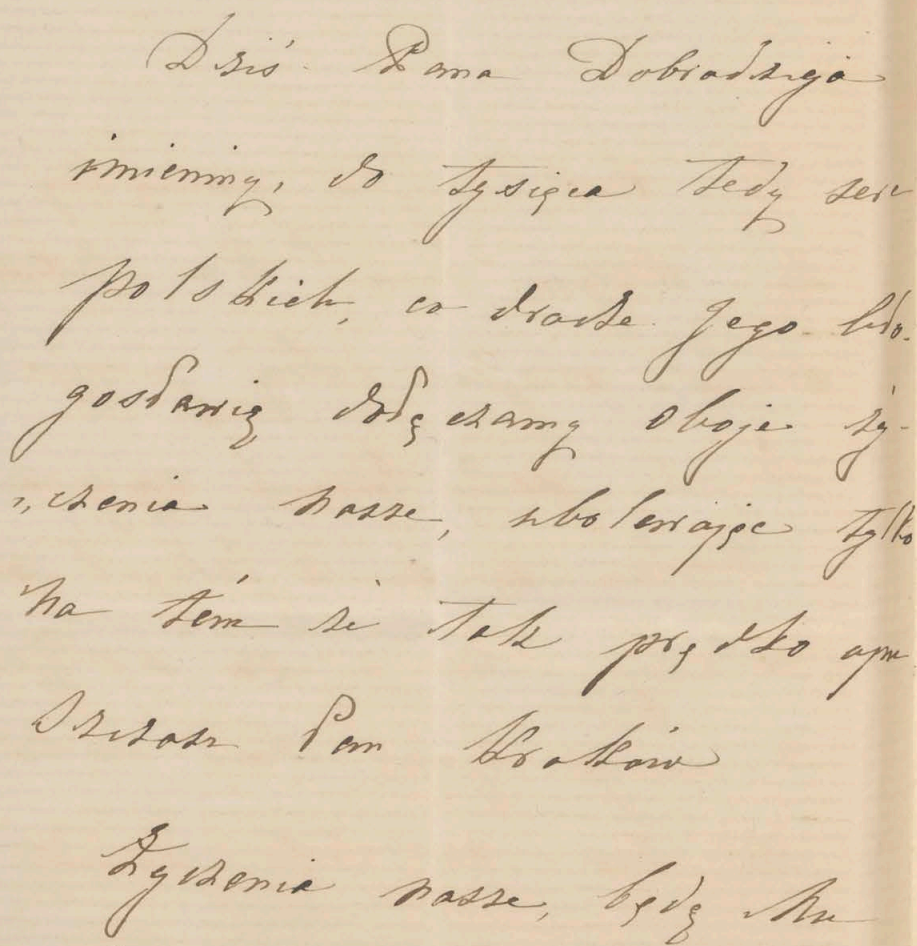 Dziś Pana Dobrodzieja
imieniny, do tysiąca tedy serc
polskich, co drodze Jego bło-
gosławią dołączamy oboje ży-
czenia nasze, ubolewając tylko
na tém że tak prędko opu-
szczasz Pan Kraków
Życzenia nasze, będą Mu